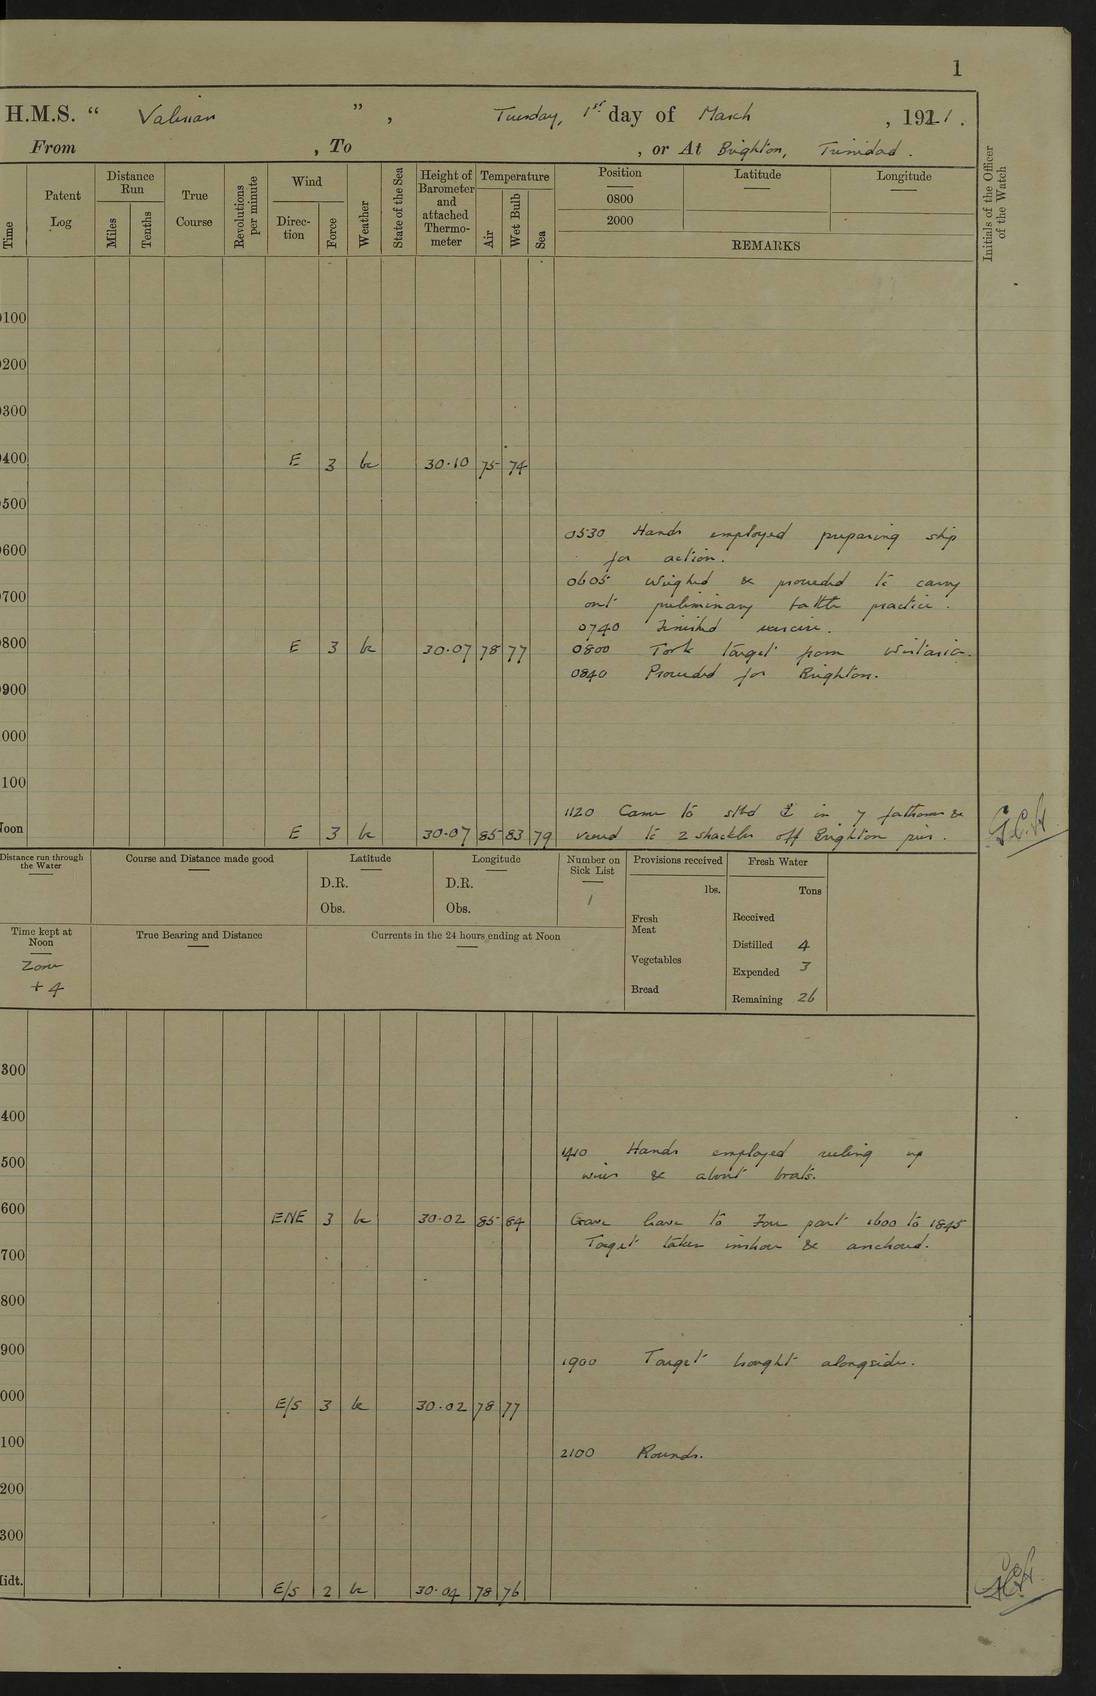 1
H.M.S. “ Valerian ” , Tuesday, 1st day of March , 1921.
From , To , or At Brighton, Trinidad.
Time
Patent Log
Distance Run
Miles
Tenths
True Course
Revolutions per minute
Wind
Direc-tion
Force
Weather
State of the Sea
Height of Barometer and attached Thermo-meter
Temperature
Air
Wet Bulb
Sea
Position
0800
2000
Latitude
Longitude
REMARKS
Initials of the Officer of the Watch
0100
0200
0300
0400 E 3 bc 30.10 75 74
0500
0530 Hands employed preparing ship
0600 for action.
0605 Weighed & proceeded to carry
0700 out preliminary battle practice.
0740 Finished exercise.
0800 E 3 bc 30.07 78 77 0800 Took target from Wistaria.
0840 Proceeded for Brighton.
0900
000
100
1120 Came to stbd ⚓ in 7 fathoms &
Noon E 3 bc 30.07 85 83 79 veered to 2 shackles off Brighton pier.
Distance run through the Water
Course and Distance made good
Latitude
D.R.
Obs.
Longitude
D.R.
Obs.
Number on Sick List
1
Provisions received
lbs.
Fresh Meat
Vegetables
Bread
Fresh Water
Tons
Received
Distilled 4
Expended 3
Remaining 26
Time kept at Noon
Zone
+ 4
True Bearing and Distance
Currents in the 24 hours ending at Noon
300
400
1410 Hands employed reeling up
500 wires & about boats.
600 ENE 3 bc 30.02 85 84 Gave leave to Fore part 1600 to 1845
Target taken inshore & anchored.
700
800
900 1900 Target brought alongside.
000 E/S 3 bc 30.02 78 77
100 2100 Rounds.
200
300
Midt. E/S 2 bc 30.04 78 76